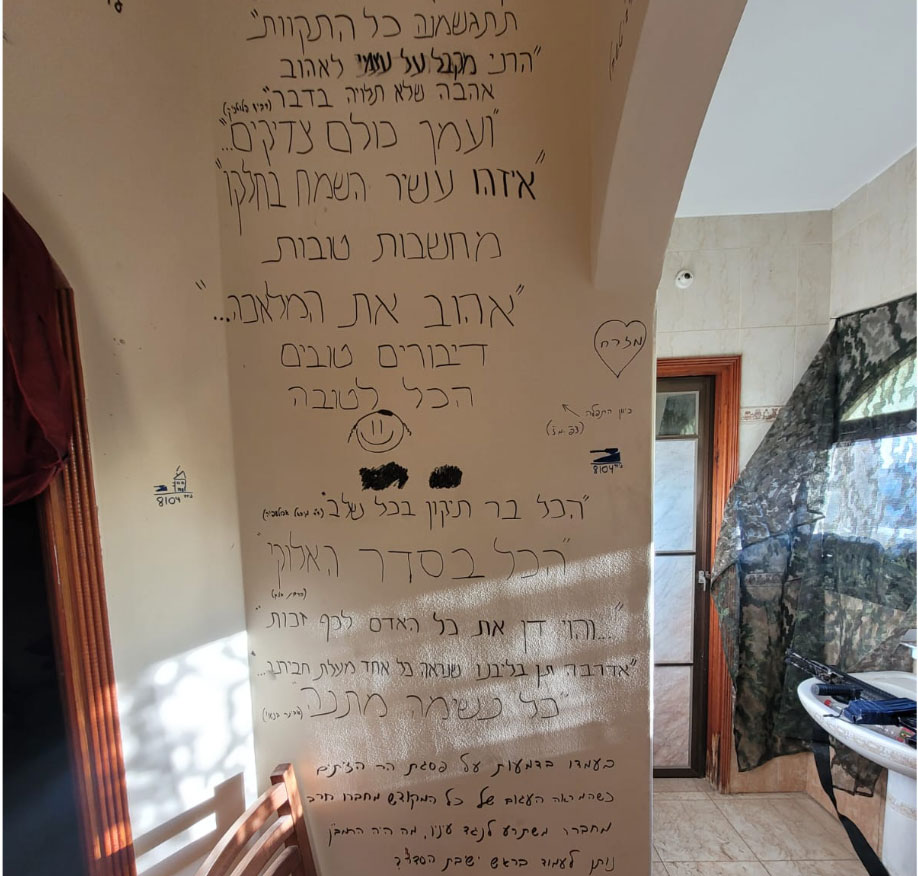 תתגשמנה כל התקוות"
"הרני מקבל על עצמי לאהוב
אהבה שלא תלויה בדבר"
"ועמך כולם צדיקים..."
"איזהו עשיר השמח בחלקו"
מחשבות טובות
"אהוב את המלאכה..."
דיבורים טובים
הכל לטובה
מזרח
כיוון התפילה
8104
8104
"הכל בר תיקון בכל שלב"
"הכל בסדר האלוקי"
"...והוי דן את כל האדם לכף זכות"
"אדרבה תן בליבנו שנראה כל אחד מעלת חבירנו..."
"כל נשימה מתנה"
בעמדו בדמעות על פסגת הר הזיתים
כשהמראה העגום של כל המקודש מחברו חרב
מחברו משתרע לנגד עיניו, מה היה
נותן לעמוד בראש ישיבת הסדר?